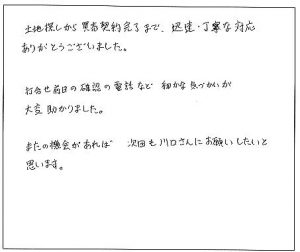 土地探しから売買契約完了まで、迅速・丁寧な対応
ありがとうございました。
打合せ前日の確認の電話など 細かな気づかいが
大変助かりました。
またの機会があれば 次回も川口さんにお願いしたいと
思います。